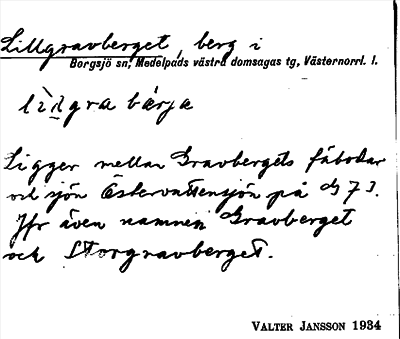 Lillgravberget, berg i
Borgsjö sn, Medelpads västra domsagas tg, Västernorrl. l.
lìlgra bärja
Ligger mellan Gravbergets fäbodar
och sjön Östervattensjön på G 7 I.
Jfr även namnen Gravberget
och Storgravberget.
VALTER JANSSON 1934